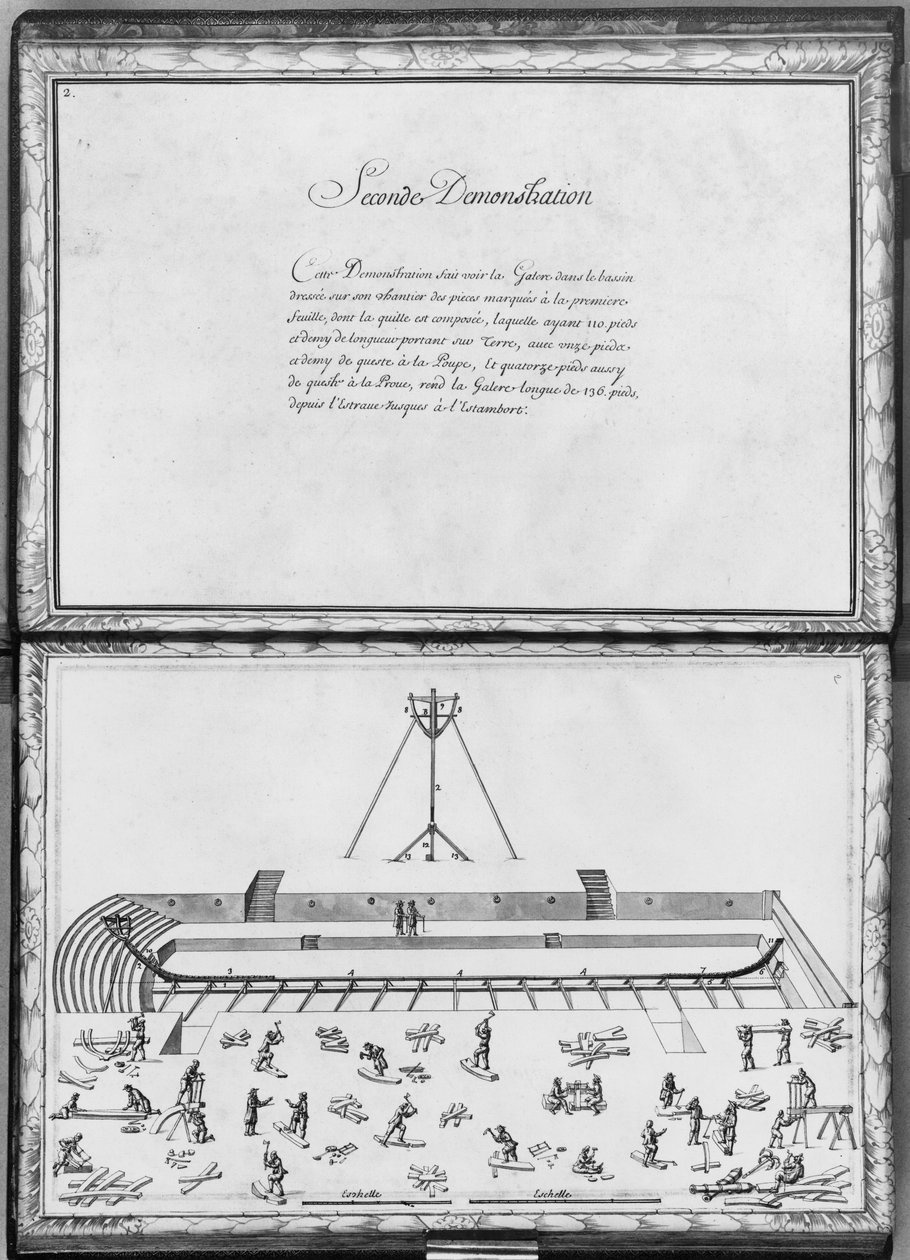 2.
Seconde Demonstration
Cette Demonstration fait voir la Galere dans le bassin
dressée sur son chantier des pieces marquées à la premiere
feuille, dont la quille est composée, laquelle ayant 110. pieds
et demy de longueur portant sur Terre, avec vnze pieds
et demy de queste à la Poupe, Et quatorze pieds aussy
de queste à la Proue, rend la Galere longue de 136. pieds,
depuis l'Estraue Jusques à l'Estambort.
2
8 8 9 8
2
12
13 13
2 3 1 4 4 4 7 5 6 11
Eschelle Eschelle